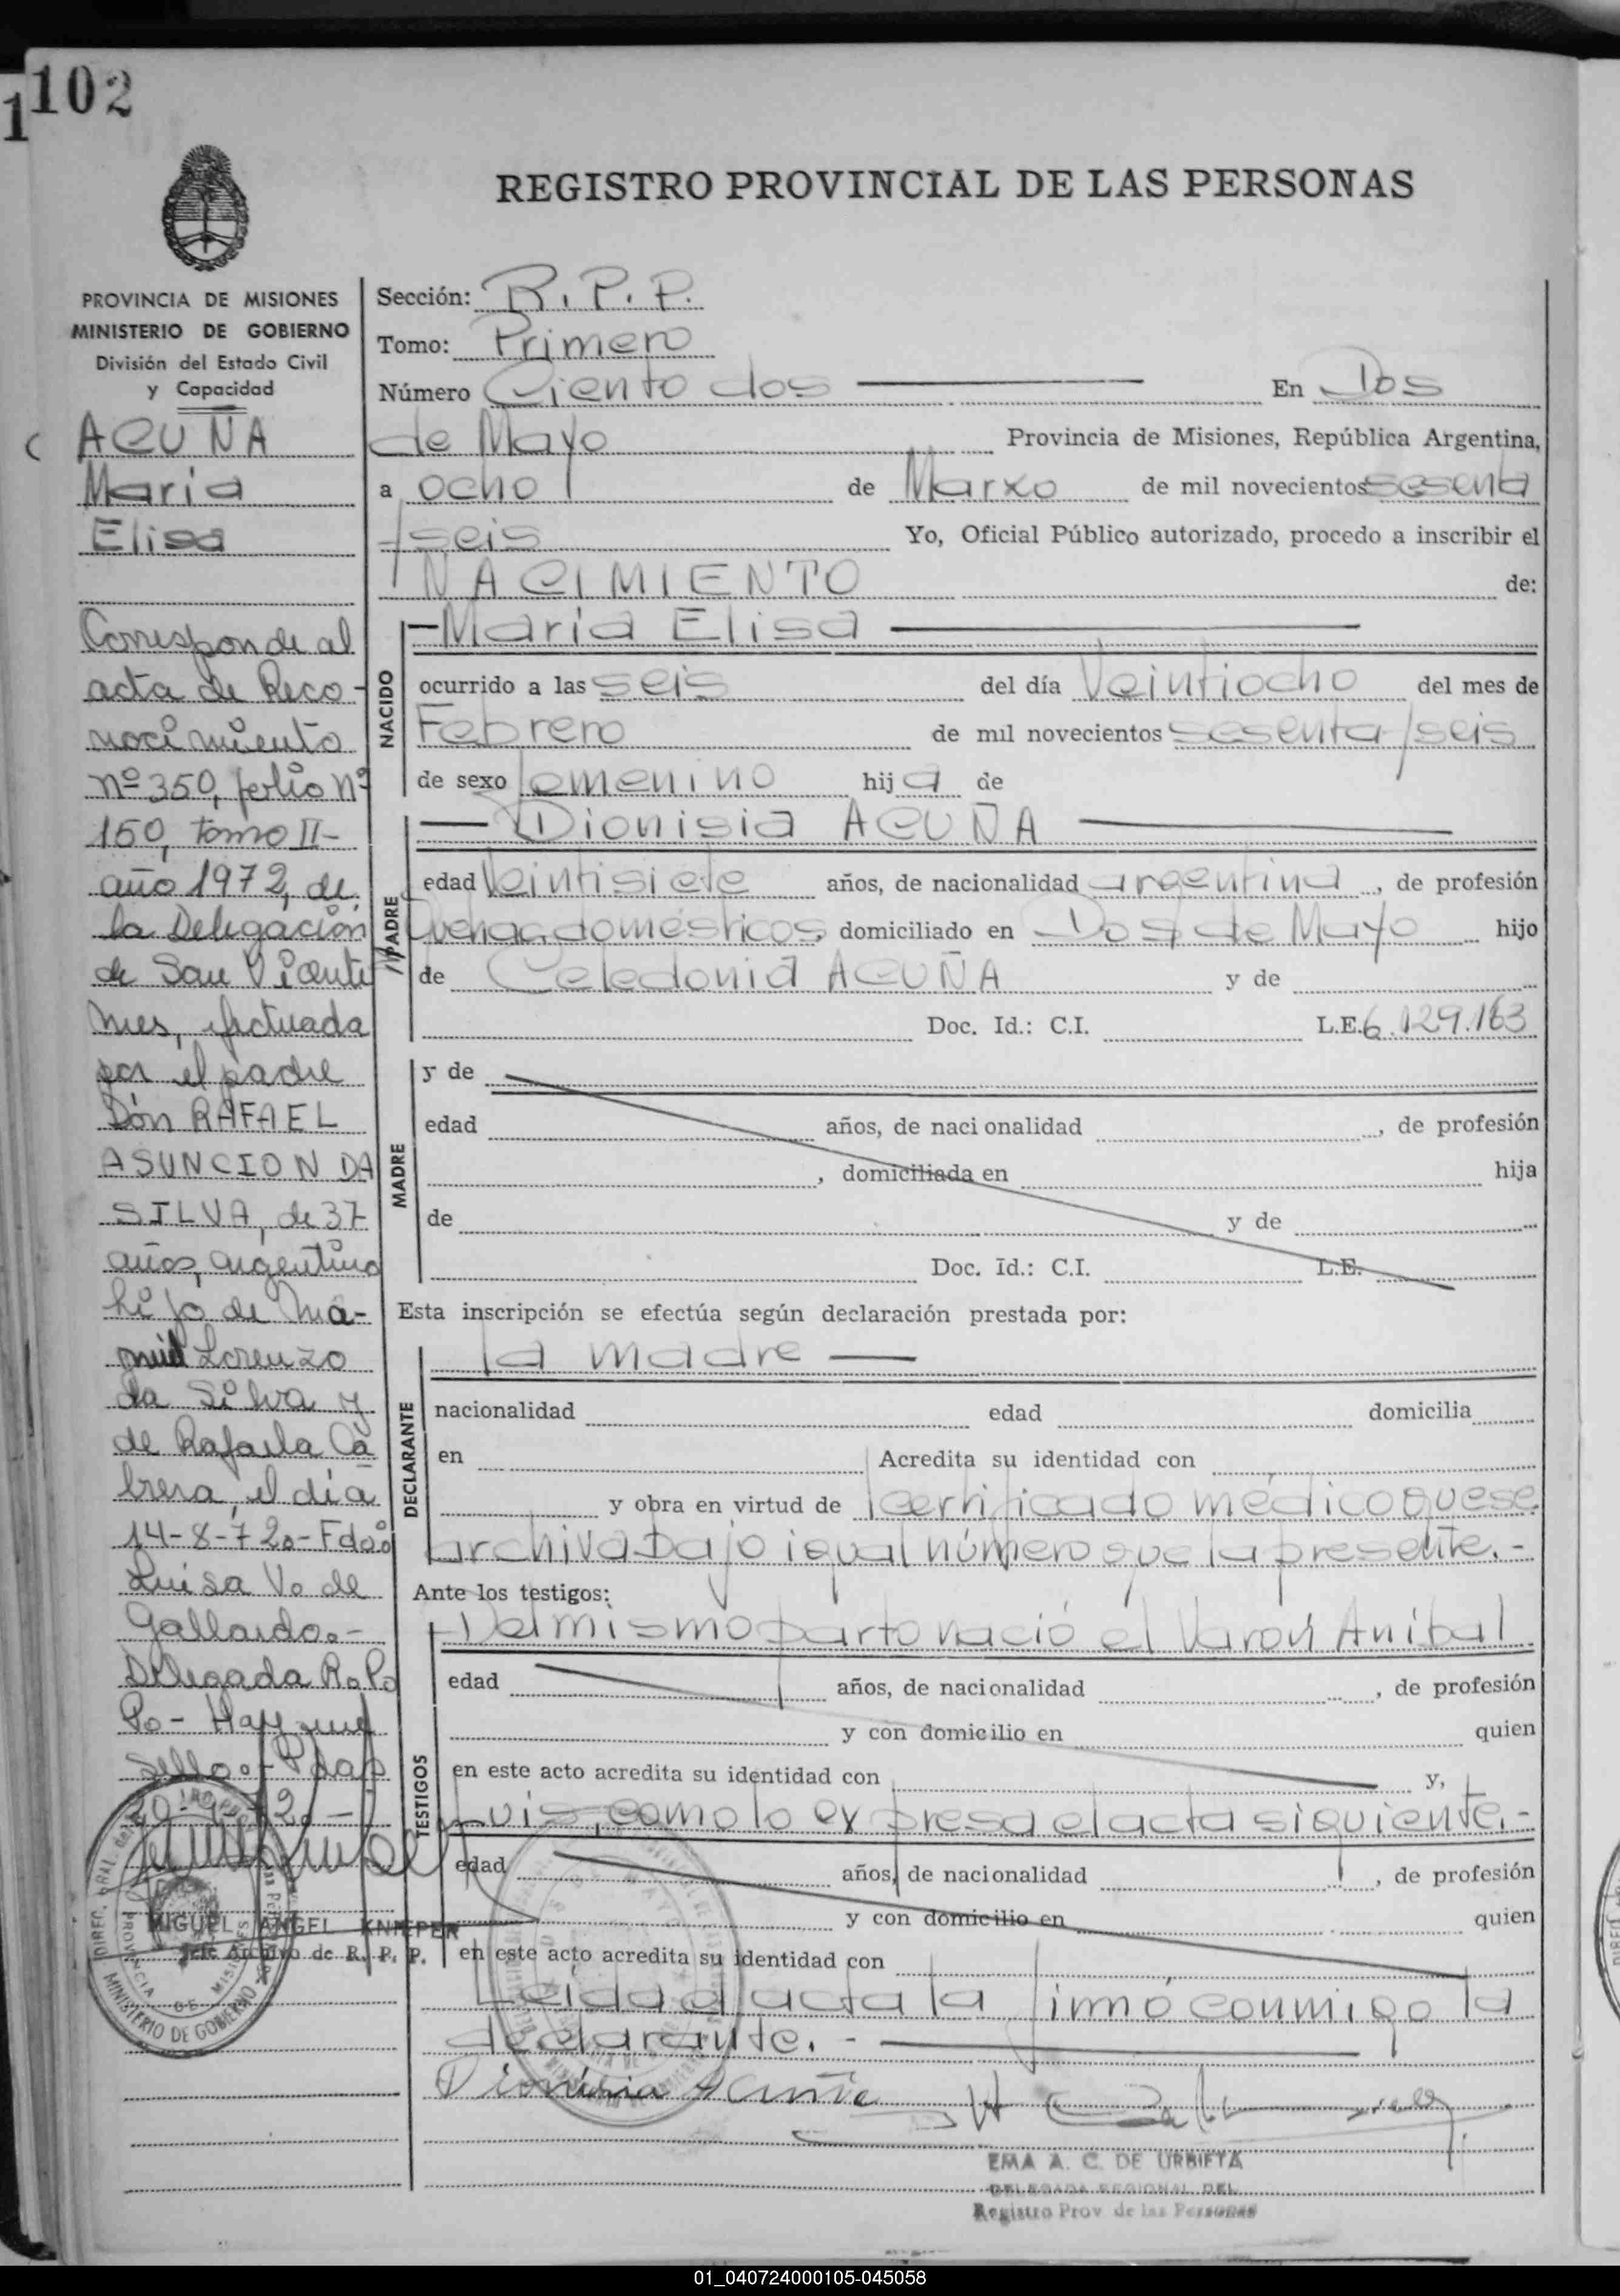 102
1
REGISTRO PROVINCIAL DE LAS PERSONAS
PROVINCIA DE MISIONES
MINISTERIO DE GOBIERNO
División del Estado Civil
y Capacidad
ACUÑA
María
Elisa
Corresponde al
acta de Reco-
nocimiento
nº 350, folio nº
150, tomo II-
año 1972, de
la Delegación
de San Vicente
Mnes, efectuada
por el padre
Don RAFAEL
ASUNCION DA
SILVA, de 37
años, argentino
hijo de Ma-
nuel Lorenzo
da Silva y
de Rafaela Ca
brera, el día
14-8-72.-Fdo:
Luisa V. de
Gallardo.-
Delegada R.P.
P.- Hay un
sello.- Pdas
MIGUEL ANGEL KNIEPER
Jefe Archivo de R. P. P.
MINISTERIO DE GOBIERNO
PROVINCIA DE MISIONES
Sección: R.P.P.
Tomo: Primero
Número Ciento dos En Dos
de Mayo Provincia de Misiones, República Argentina,
a ocho de Marzo de mil novecientos sesenta
y seis Yo, Oficial Público autorizado, procedo a inscribir el
NACIMIENTO de:
NACIDO
María Elisa
ocurrido a las seis del día Veintiocho del mes de
Febrero de mil novecientos sesenta y seis
de sexo femenino hija de
Dionisia ACUÑA
PADRE
edad Veintisiete años, de nacionalidad argentina, de profesión
domésticos, domiciliado en Dos de Mayo hijo
de Celedonia ACUÑA y de
Doc. Id.: C.I. L.E. 6.129.163
MADRE
y de
edad años, de nacionalidad , de profesión
, domiciliada en hija
de y de
Doc. Id.: C.I. L.E.
Esta inscripción se efectúa según declaración prestada por:
DECLARANTE
la madre
nacionalidad edad domicilia
en Acredita su identidad con
y obra en virtud de certificado médico que se
archiva bajo igual número que la presente.-
Ante los testigos:
TESTIGOS
Del mismo parto nació el varón Aníbal
edad años, de nacionalidad , de profesión
y con domicilio en quien
en este acto acredita su identidad con y,
Luis, como lo expresa el acta siguiente.-
edad años, de nacionalidad , de profesión
y con domicilio en quien
en este acto acredita su identidad con
Leída el acta la firmó conmigo la
declarante.-
Dionisia Acuña
EMA A. C. DE URBIETA
DELEGADA REGIONAL DEL
Registro Prov. de las Personas
01_040724000105-045058